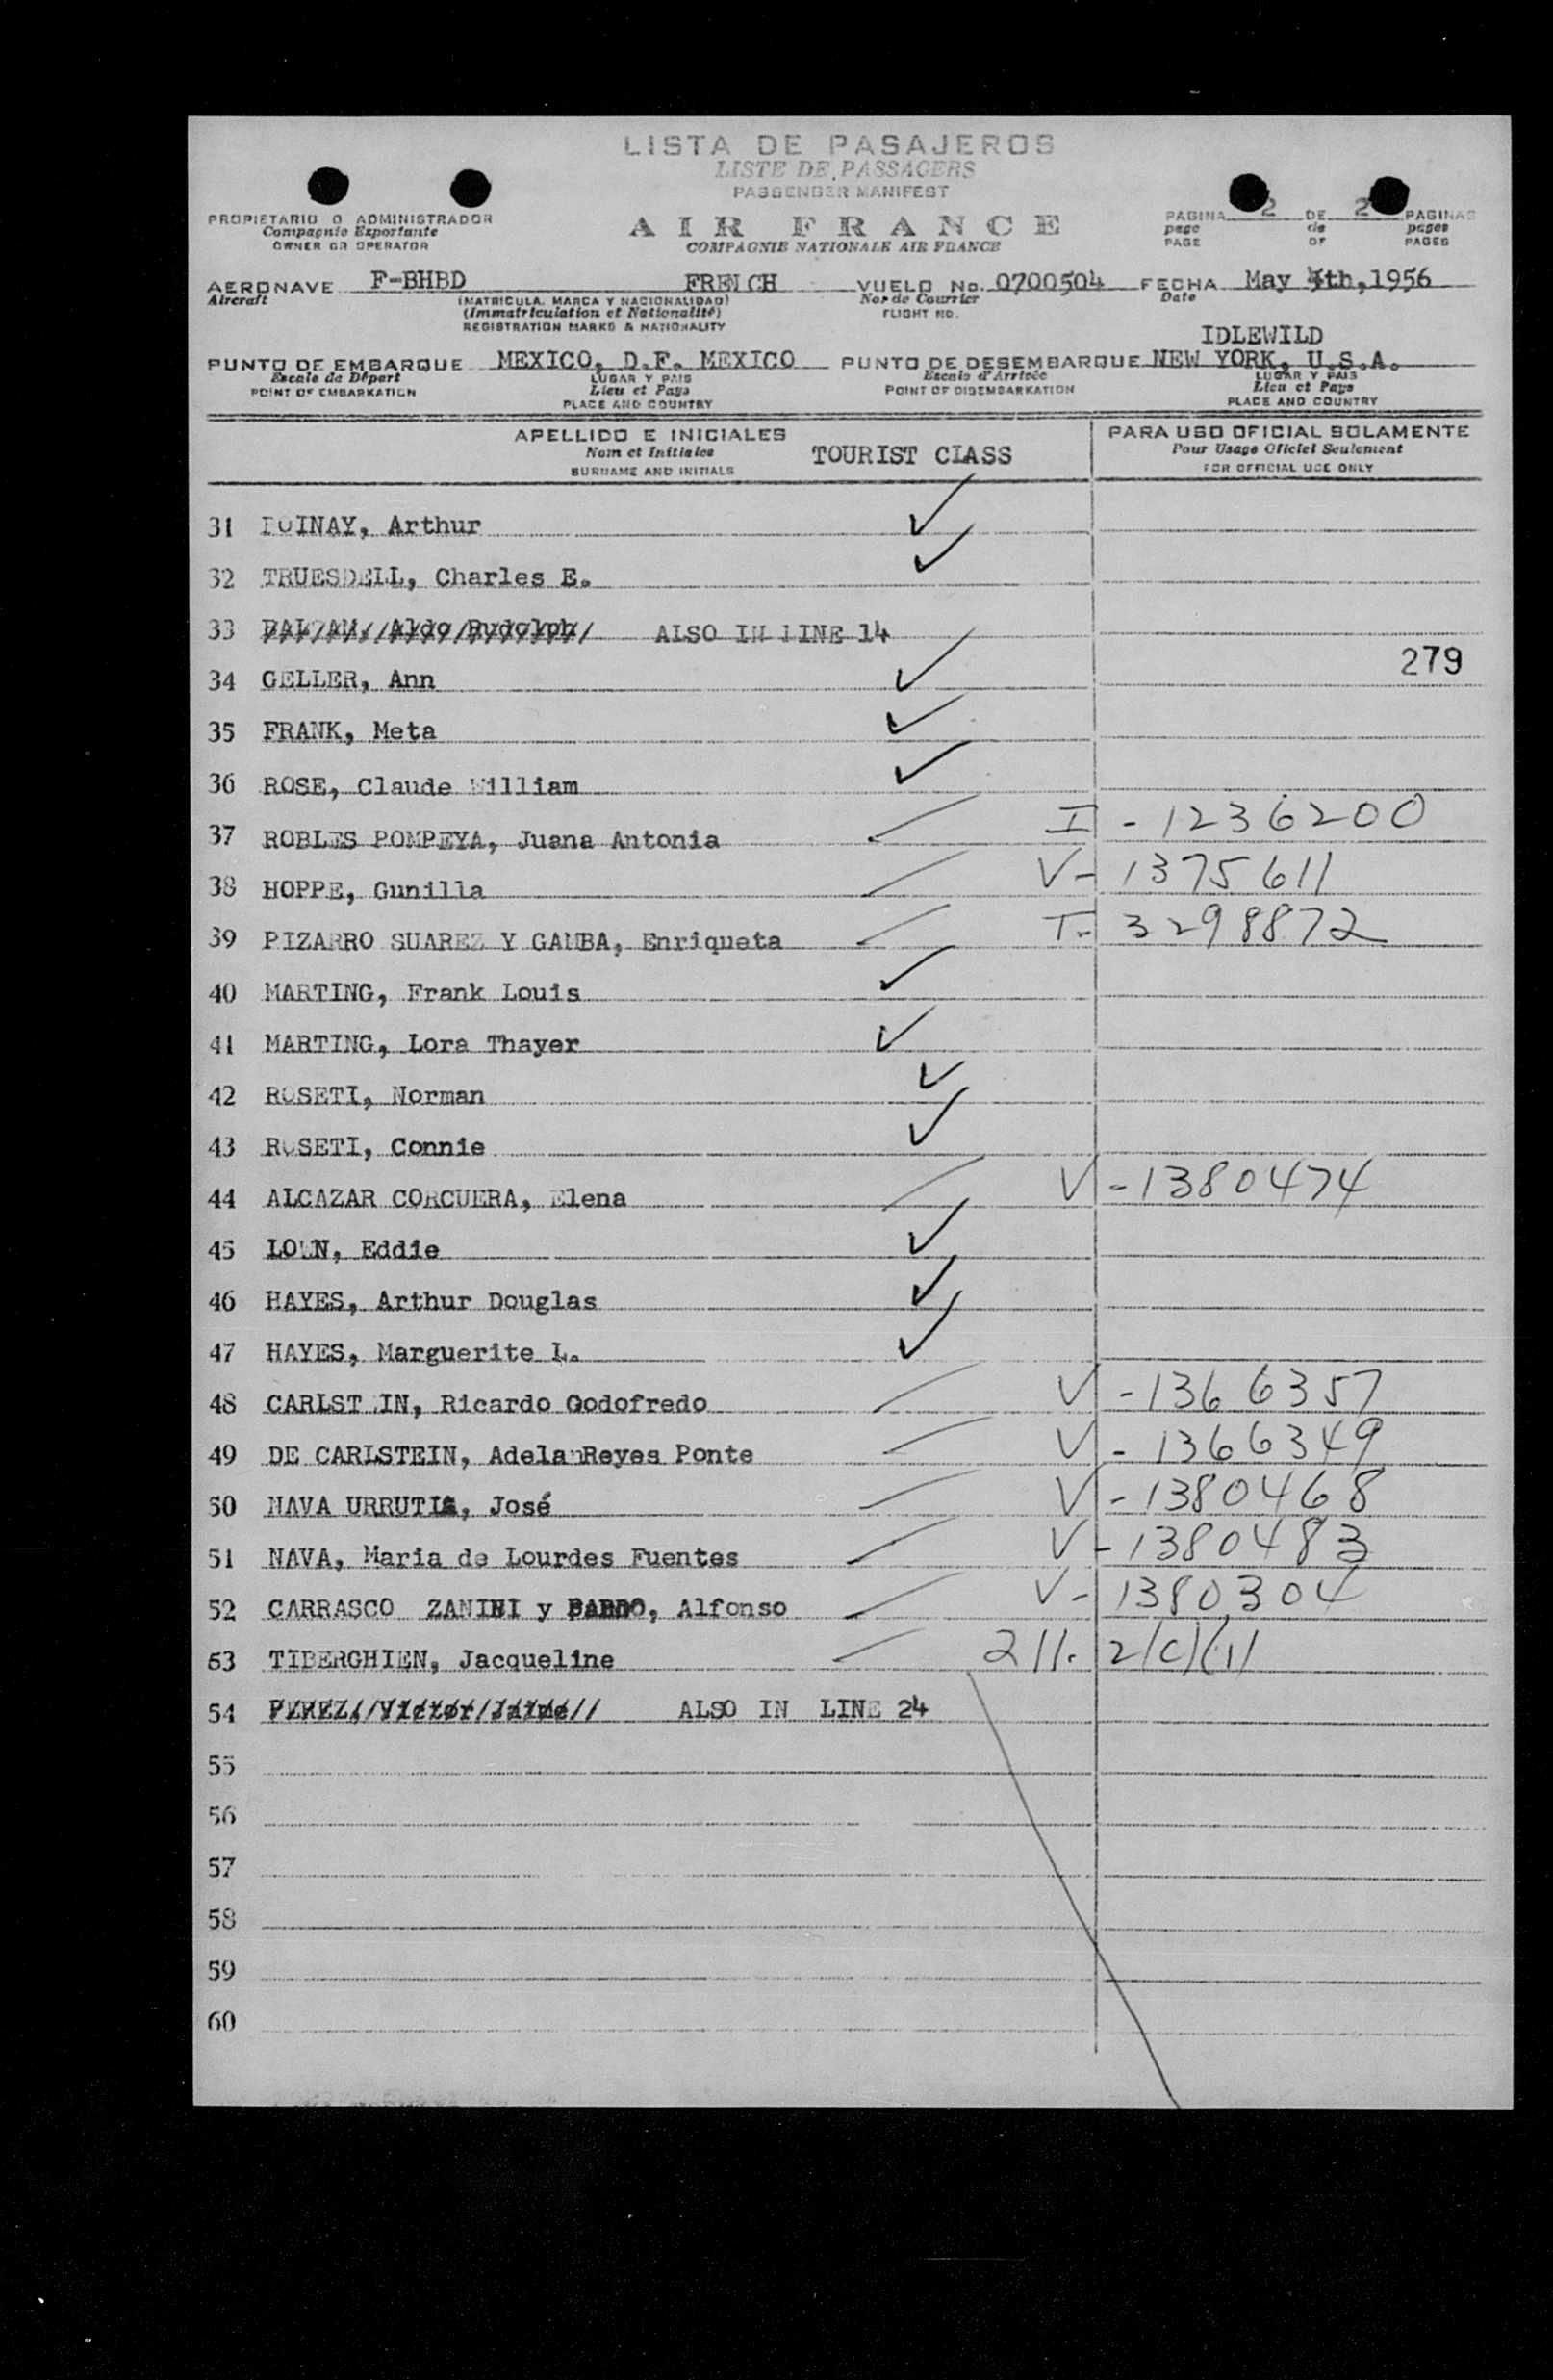 LISTA DE PASAJEROS
LISTE DE PASSAGERS
PASSENGER MANIFEST
PROPIETARIO O ADMINISTRADOR
Compagnie Exportante
OWNER OR OPERATOR
AIR FRANCE
COMPAGNIE NATIONALE AIR FRANCE
PAGINA 2 DE 2 PAGINAS
page de pages
PAGE OF PAGES
AERONAVE F-BHBD FRENCH VUELO No. 0700504 FECHA May 4th,1956
Aircraft (MATRICULA, MARCA Y NACIONALIDAD) No. de Courrier Date
(Immatriculation et Nationalité) FLIGHT NO.
REGISTRATION MARKS & NATIONALITY
IDLEWILD
PUNTO DE EMBARQUE MEXICO, D.F. MEXICO PUNTO DE DESEMBARQUE NEW YORK, U.S.A.
Escale de Départ LUGAR Y PAIS Escale d'Arrivée LUGAR Y PAIS
POINT OF EMBARKATION Lieu et Pays POINT OF DISEMBARKATION Lieu et Pays
PLACE AND COUNTRY PLACE AND COUNTRY
APELLIDO E INICIALES PARA USO OFICIAL SOLAMENTE
Nom et Initiales TOURIST CLASS Pour Usage Officiel Seulement
SURNAME AND INITIALS FOR OFFICIAL USE ONLY
31 Arthur
32 TRUESDELL, Charles E.
33 Aldo Rudolph ALSO IN LINE 14
279
34 GELLER, Ann
35 FRANK, Meta
36 ROSE, Claude William
37 ROBLES POMPEYA, Juana Antonia I - 1236200
38 HOPPE, Gunilla V - 1375611
39 PIZARRO SUAREZ Y GAMBA, Enriqueta T- 3298872
40 MARTING, Frank Louis
41 MARTING, Lora Thayer
42 ROSETI, Norman
43 ROSETI, Connie
44 ALCAZAR CORCUERA, Elena V - 1380474
45 Eddie
46 HAYES, Arthur Douglas
47 HAYES, Marguerite L.
48 CARLSTEIN, Ricardo Godofredo V - 1366357
49 DE CARLSTEIN, Adela Reyes Ponte V - 1366349
50 NAVA URRUTIA, José V - 1380468
51 NAVA, Maria de Lourdes Fuentes V - 1380483
52 CARRASCO ZANINI y PARDO, Alfonso V - 1380304
53 TIBERGHIEN, Jacqueline 211. 2(c)(1)
54 PEREZ, Victor Jaime ALSO IN LINE 24
55
56
57
58
59
60